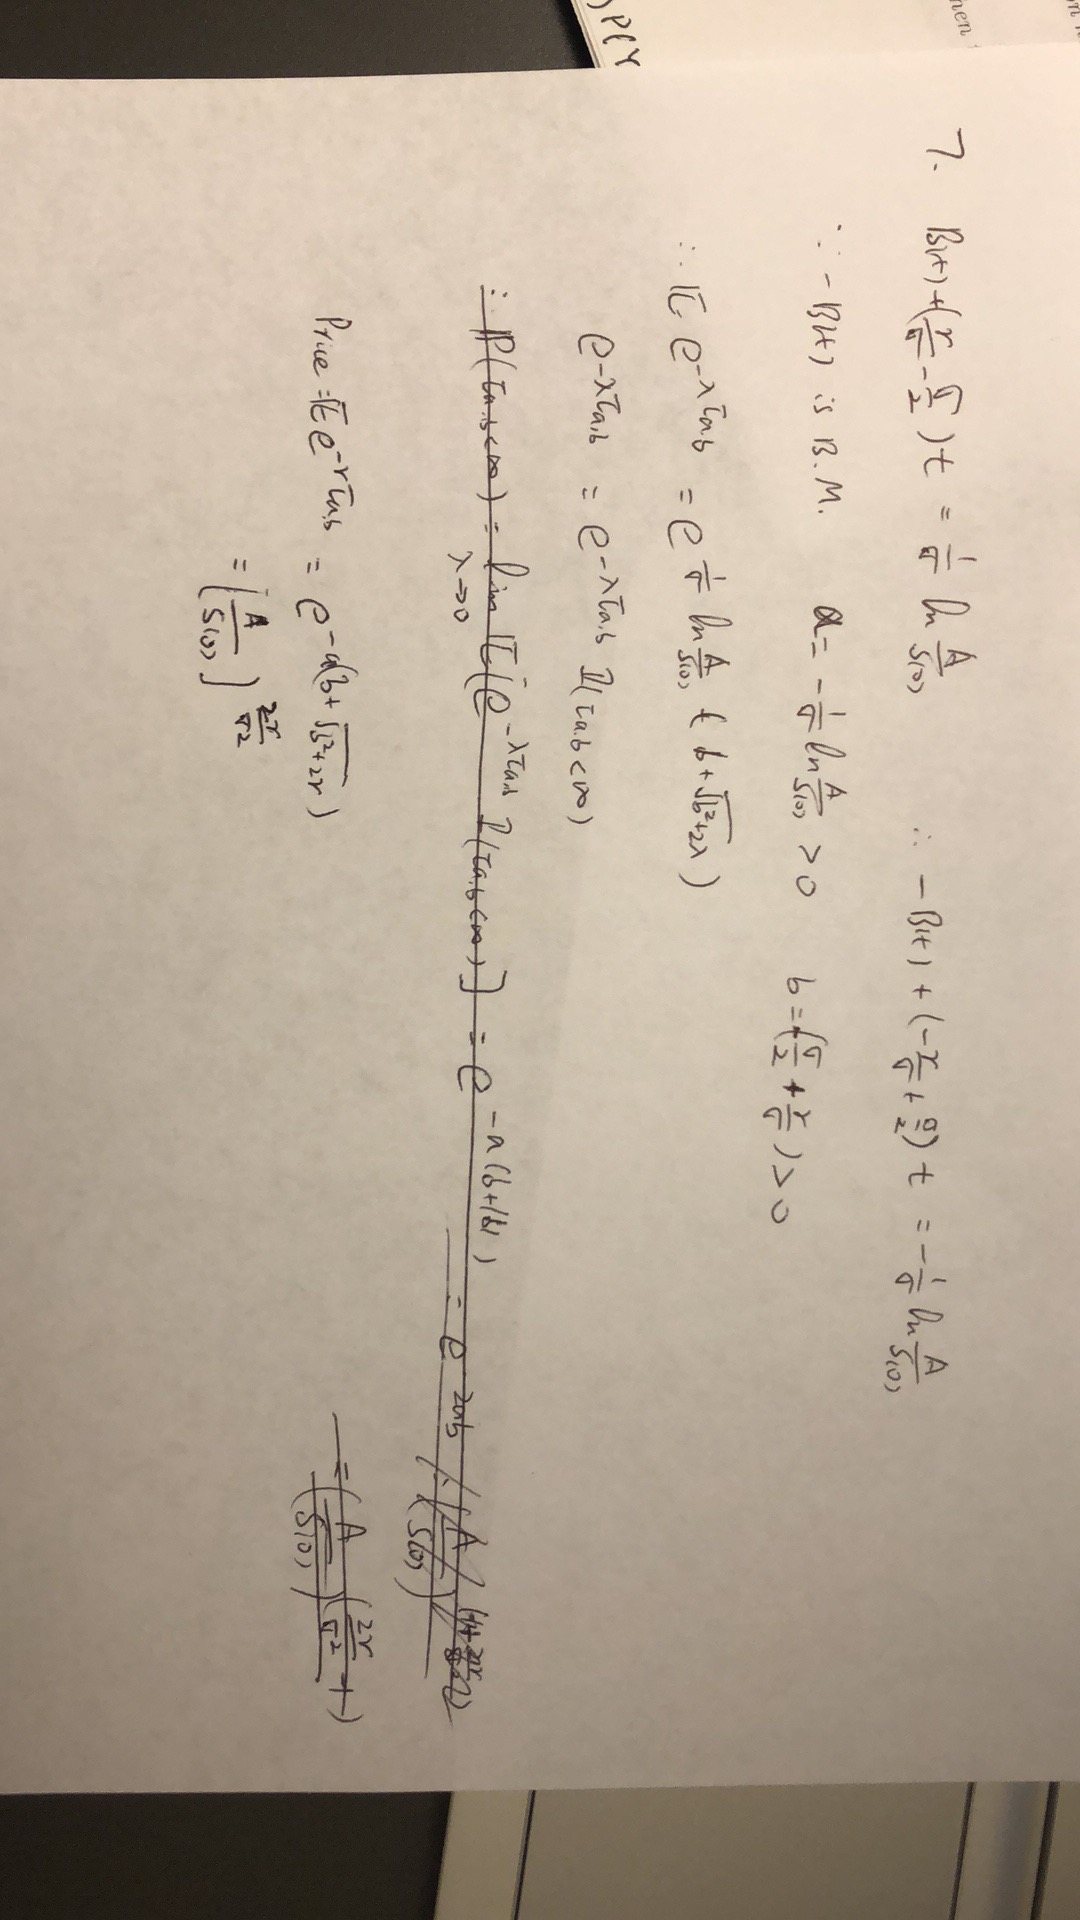 7. B(t)+(r/σ - σ/2)t = 1/σ ln A/S(0) ∴ -B(t) + (-r/σ + σ/2)t = -1/σ ln A/S(0)
∵ -B(t) is B.M. a = -1/σ ln A/S(0) > 0 b = (σ/2 + r/σ) > 0
∴ E e^{-λτ_{a,b}} = e^{1/σ ln A/S(0) (b+√(b²+2λ))}
e^{-λτ_{a,b}} = e^{-λτ_{a,b}} I(τ_{a,b}<∞)
∴ P(τ_{a,b}<∞) = lim_{λ→0} E[e^{-λτ_{a,b}} I(τ_{a,b}<∞)] = e^{-a(b+|b|)} = e^{2ab} (A/S(0))
Price = E e^{-rτ_{a,b}} = e^{-a(b+√(b²+2r))} = (A/S(0))^{(2r/σ² + 1)}
= (A/S(0))^{2r/σ²}
)P(Y
hen